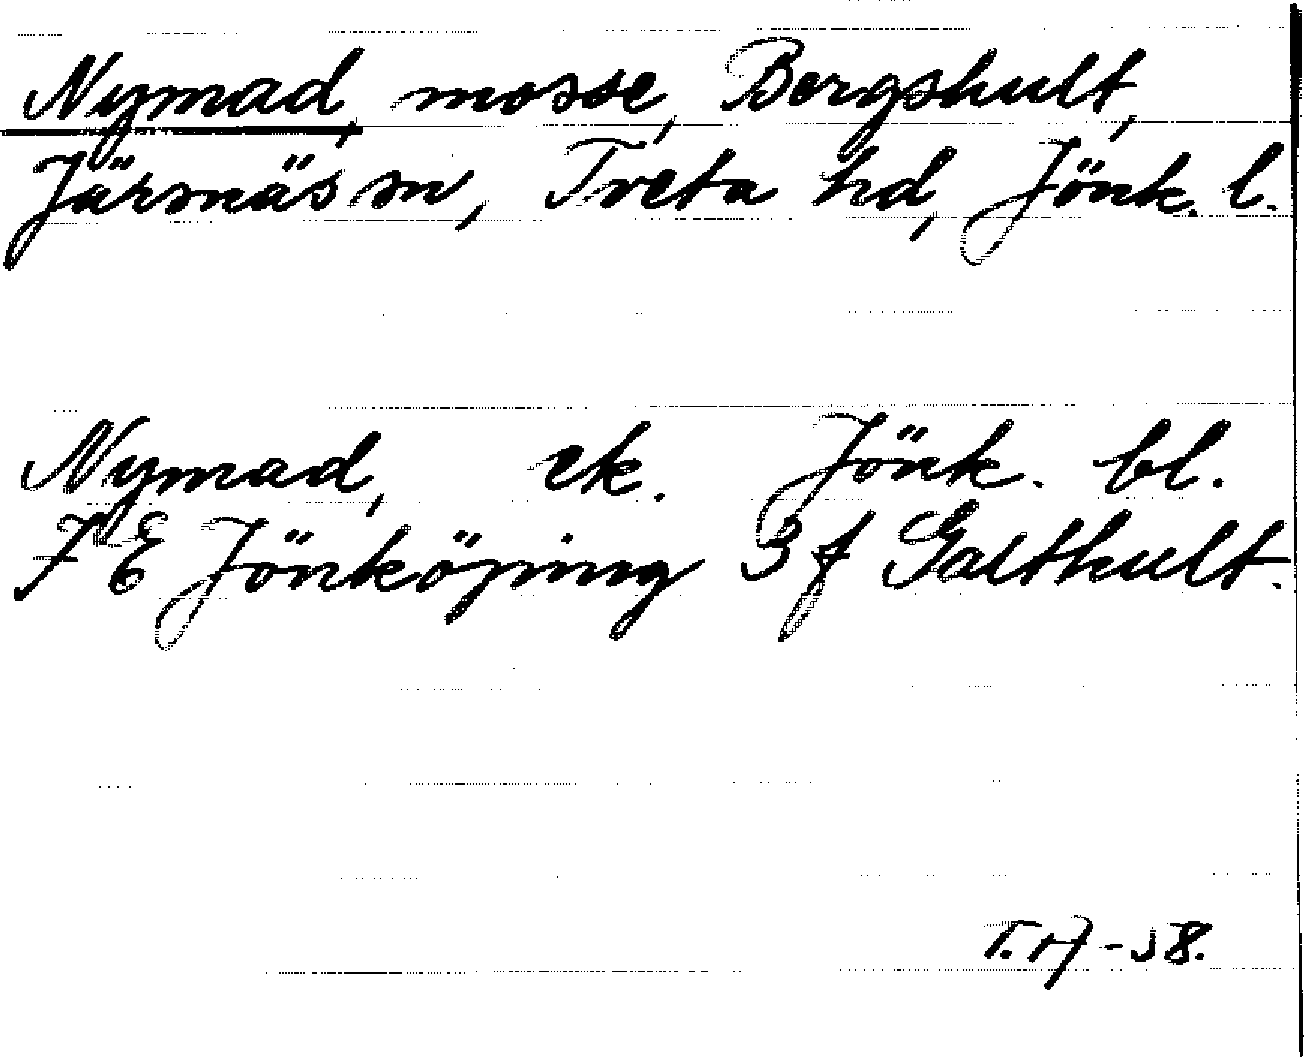 Nymad, mosse, Bergshult,
Järsnäs sn, Tveta hd, Jönk. l.
Nymad, ek. Jönk. bl.
7 E Jönköping 3 f Galthult.
T. A -58.